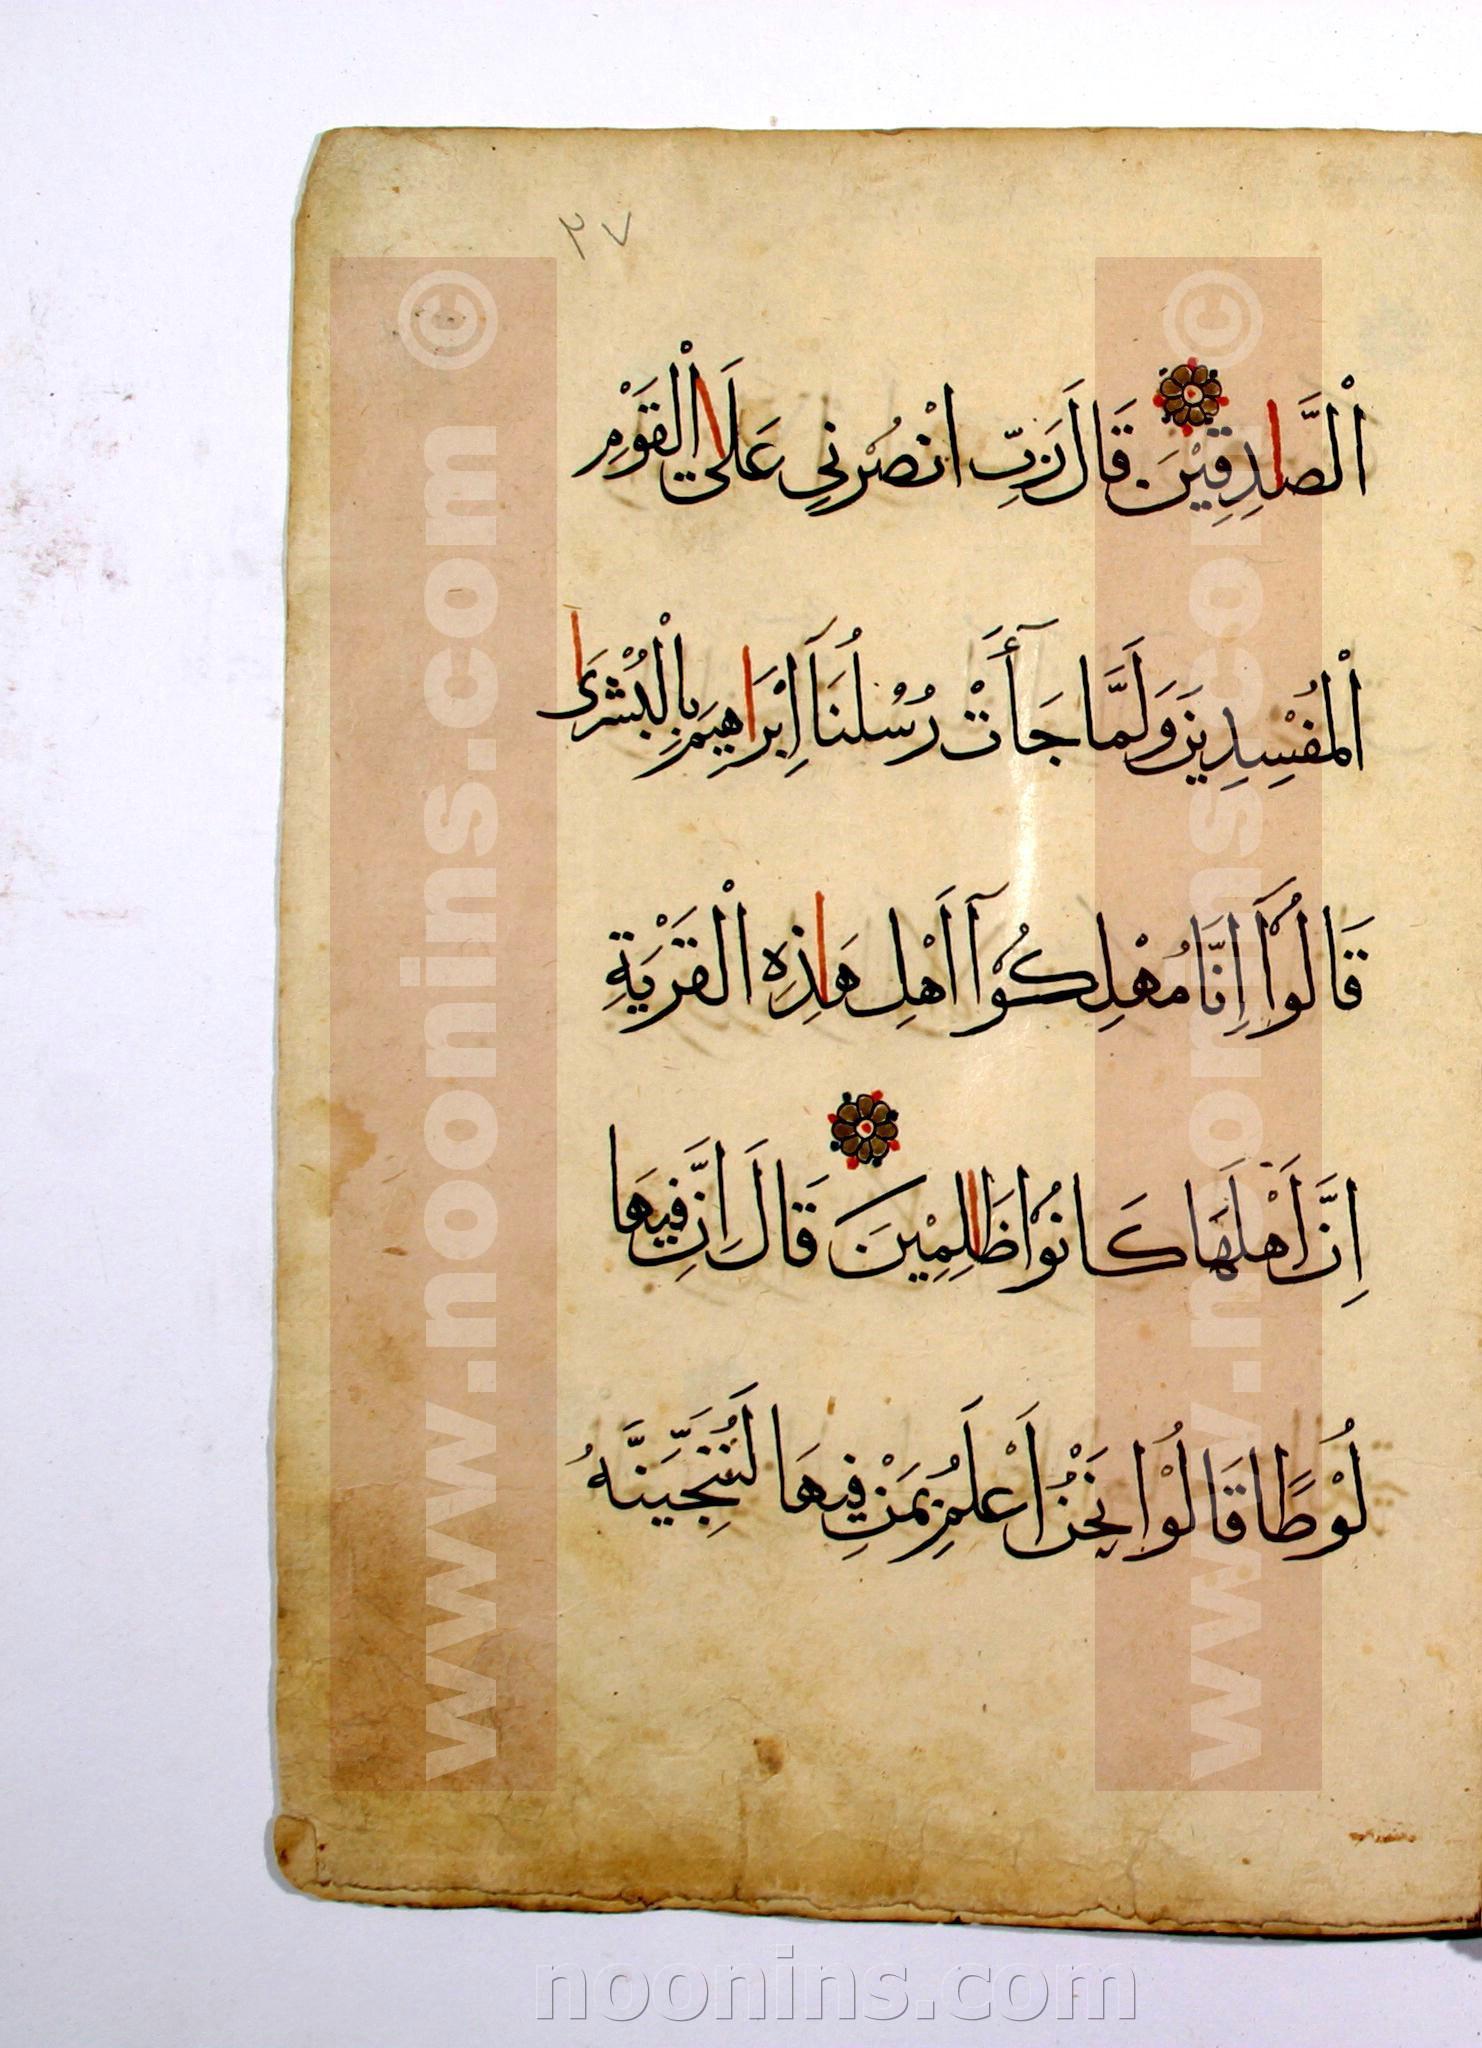 ٢٧
اَلْصَّادِقِيْنَ قَالَ رَبِّ انْصُرْنِي عَلَى الْقَوْمِ
اَلْمُفْسِدِينَ وَلَمَّا جَآأَتْ رُسُلُنَآ اِبْرَاهِيمَ بِالْبُشْرَى
قَالُوْٓا اِنَّا مُهْلِكُوْٓا اَهْلِ هَاذِهِ الْقَرْيَةِ
اِنَّ اَهْلَهَا كَانُوْا ظَالِمِيْنَ قَالَ اِنَّ فِيهَا
لُوْطًا قَالُوْا نَحْنُ اَعْلَمُ بِمَنْ فِيهَا لَنُنَجِّيَنَّهُ
www.noonins.com ©
www.noonins.com ©
noonins.com